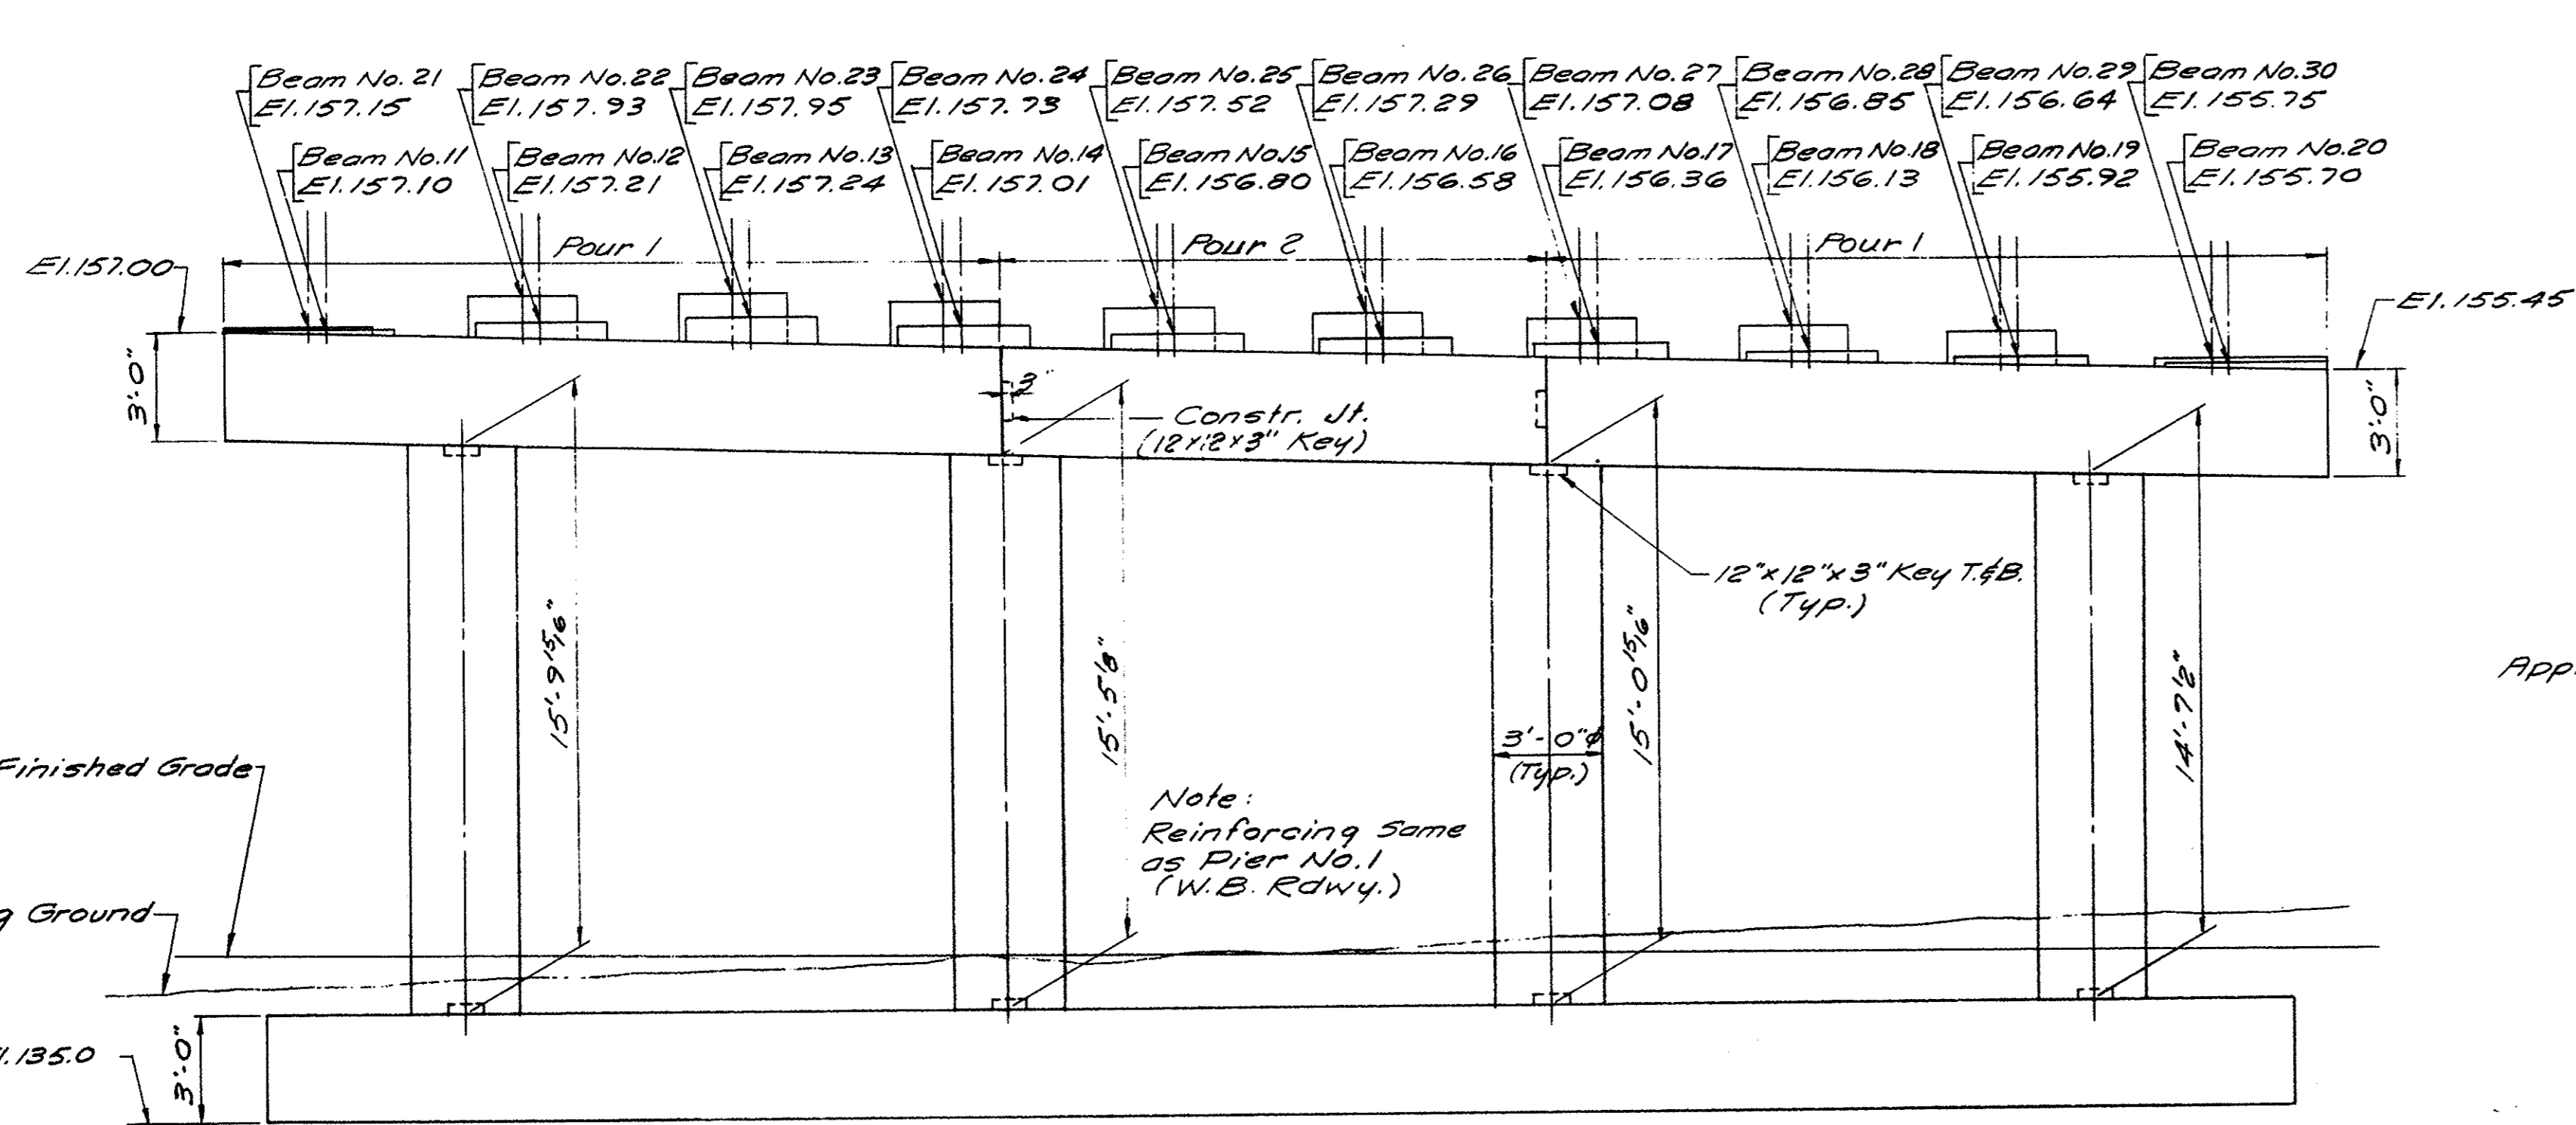 Beam No. 21
El. 157.15
Beam No. 22
El. 157.93
Beam No. 23
El. 157.95
Beam No. 24
El. 157.73
Beam No. 25
El. 157.52
Beam No. 26
El. 157.29
Beam No. 27
El. 157.08
Beam No. 28
El. 156.85
Beam No. 29
El. 156.64
Beam No. 30
El. 155.75
Beam No. 11
El. 157.10
Beam No. 12
El. 157.21
Beam No. 13
El. 157.24
Beam No. 14
El. 157.01
Beam No. 15
El. 156.80
Beam No. 16
El. 156.58
Beam No. 17
El. 156.36
Beam No. 18
El. 156.13
Beam No. 19
El. 155.92
Beam No. 20
El. 155.70
Pour 1
Pour 2
Pour 1
El. 157.00
El. 155.45
3'-0"
3"
Constr. Jt.
(12x12x3" Key)
3'-0"
12"x12"x3" Key T.&B.
(Typ.)
15'-9 15/16"
15'-5 1/8"
15'-0 15/16"
14'-7 1/2"
3'-0"ø
(Typ.)
App.
Finished Grade
Note:
Reinforcing Same
as Pier No. 1
(W.B. Rdwy.)
g Ground
El. 135.0
3'-0"